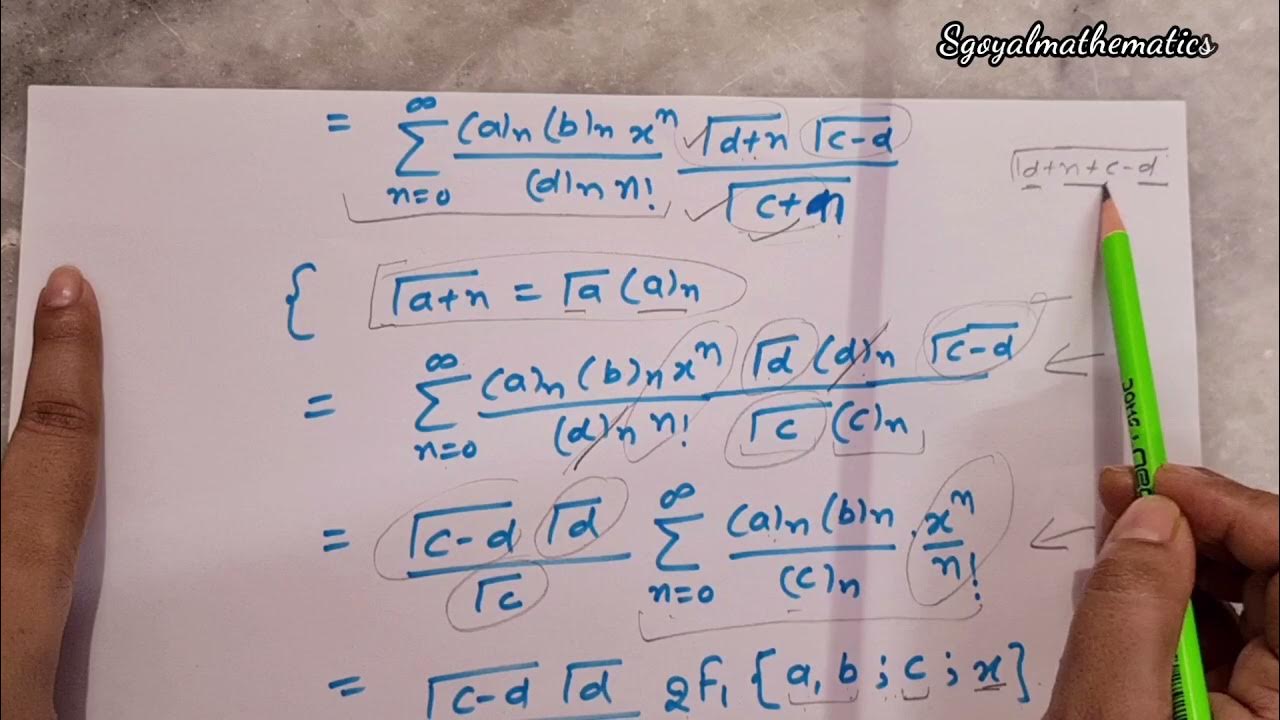 Sgoyalmathematics
= ∞ Σ n=0 (a)n (b)n xⁿ / (d)n n! · Γd+n Γc-d / Γc+n
Γd+n+c-d
{ Γa+n = Γa (a)n
= ∞ Σ n=0 (a)n (b)n xⁿ / (d)n n! · Γd (d)n Γc-d / Γc (c)n
= Γc-d Γd / Γc ∞ Σ n=0 (a)n (b)n / (c)n · xⁿ / n!
= Γc-d Γd 2F1 {a, b ; c ; x}